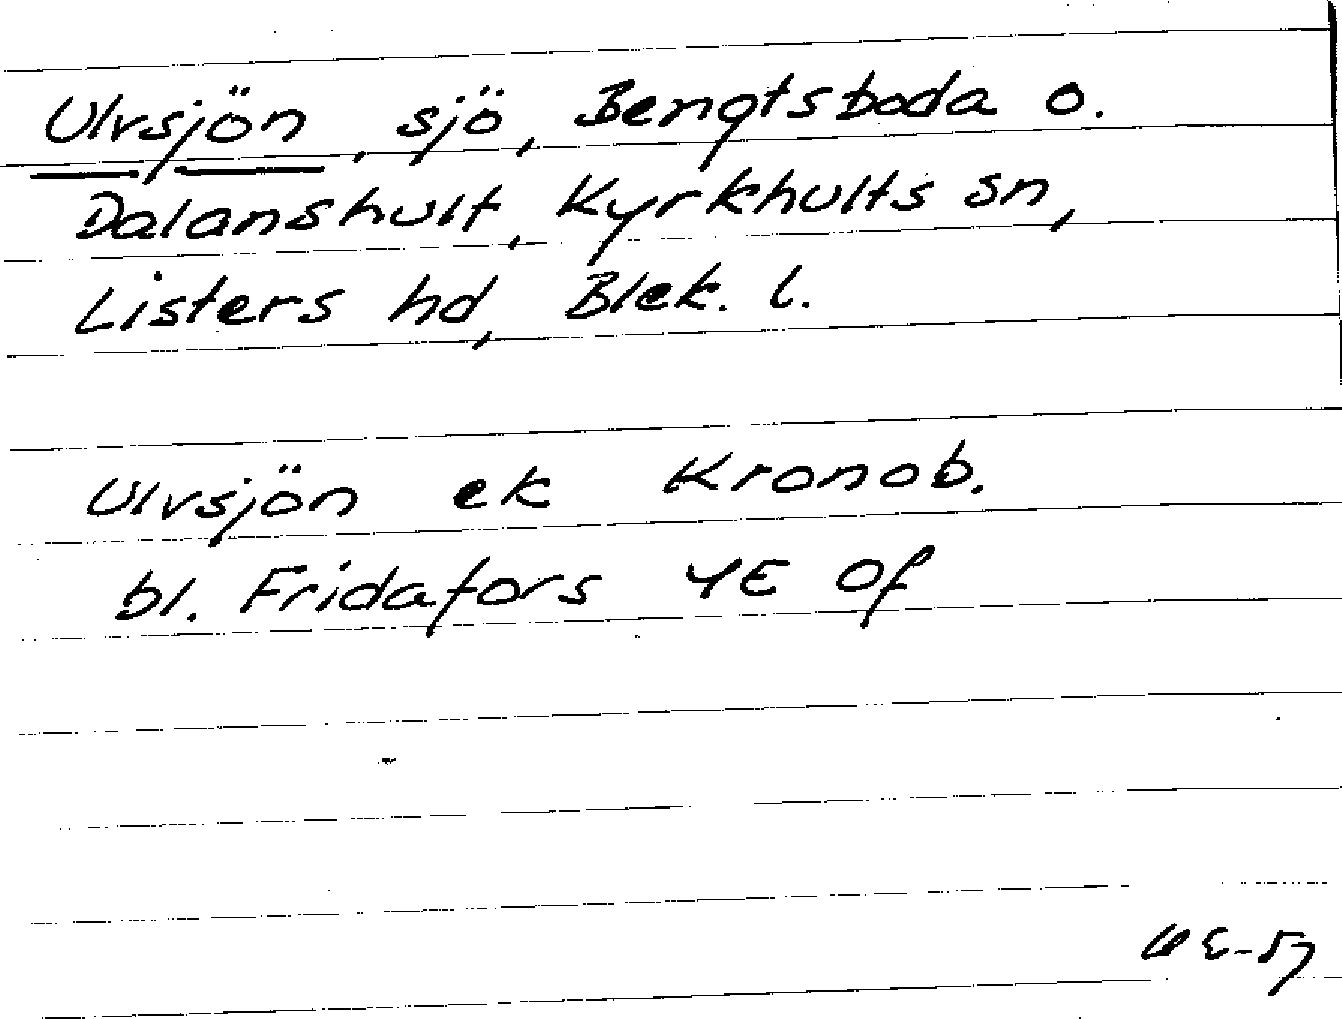 Ulvsjön, sjö, Bengtsboda o.
Dalanshult, Kyrkhults sn,
Listers hd, Blek. l.
Ulvsjön ek Kronob.
bl. Fridafors 4E Of